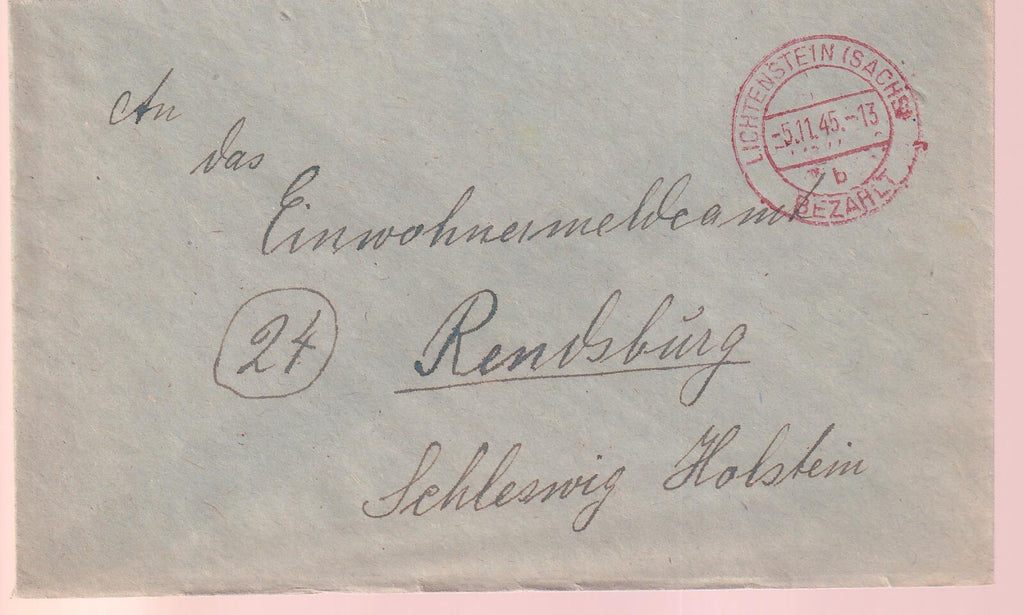 An
das
Einwohnermeldeamt
24 Rendsburg
Schleswig Holstein
LICHTENSTEIN (SACHS)
-5.11.45.-13
b
BEZAHLT